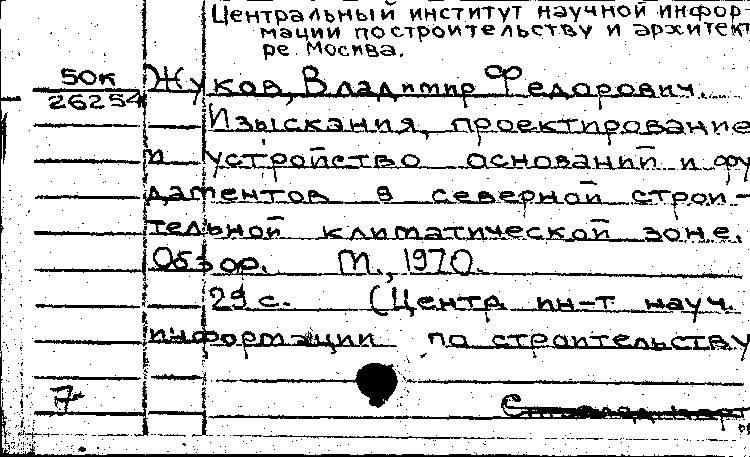 Центральный институт научной инфор-
мации по строительству и архитект
ре. Москва.
50к
26254
Жуков, Владимир Федорович.
Изыскания, проектирование
и устройство оснований и фу
даментов в северной строи-
тельной климатической зоне.
Обзор. М., 1970.
29 с. (Центр. ин-т науч.
информации по строительству
7